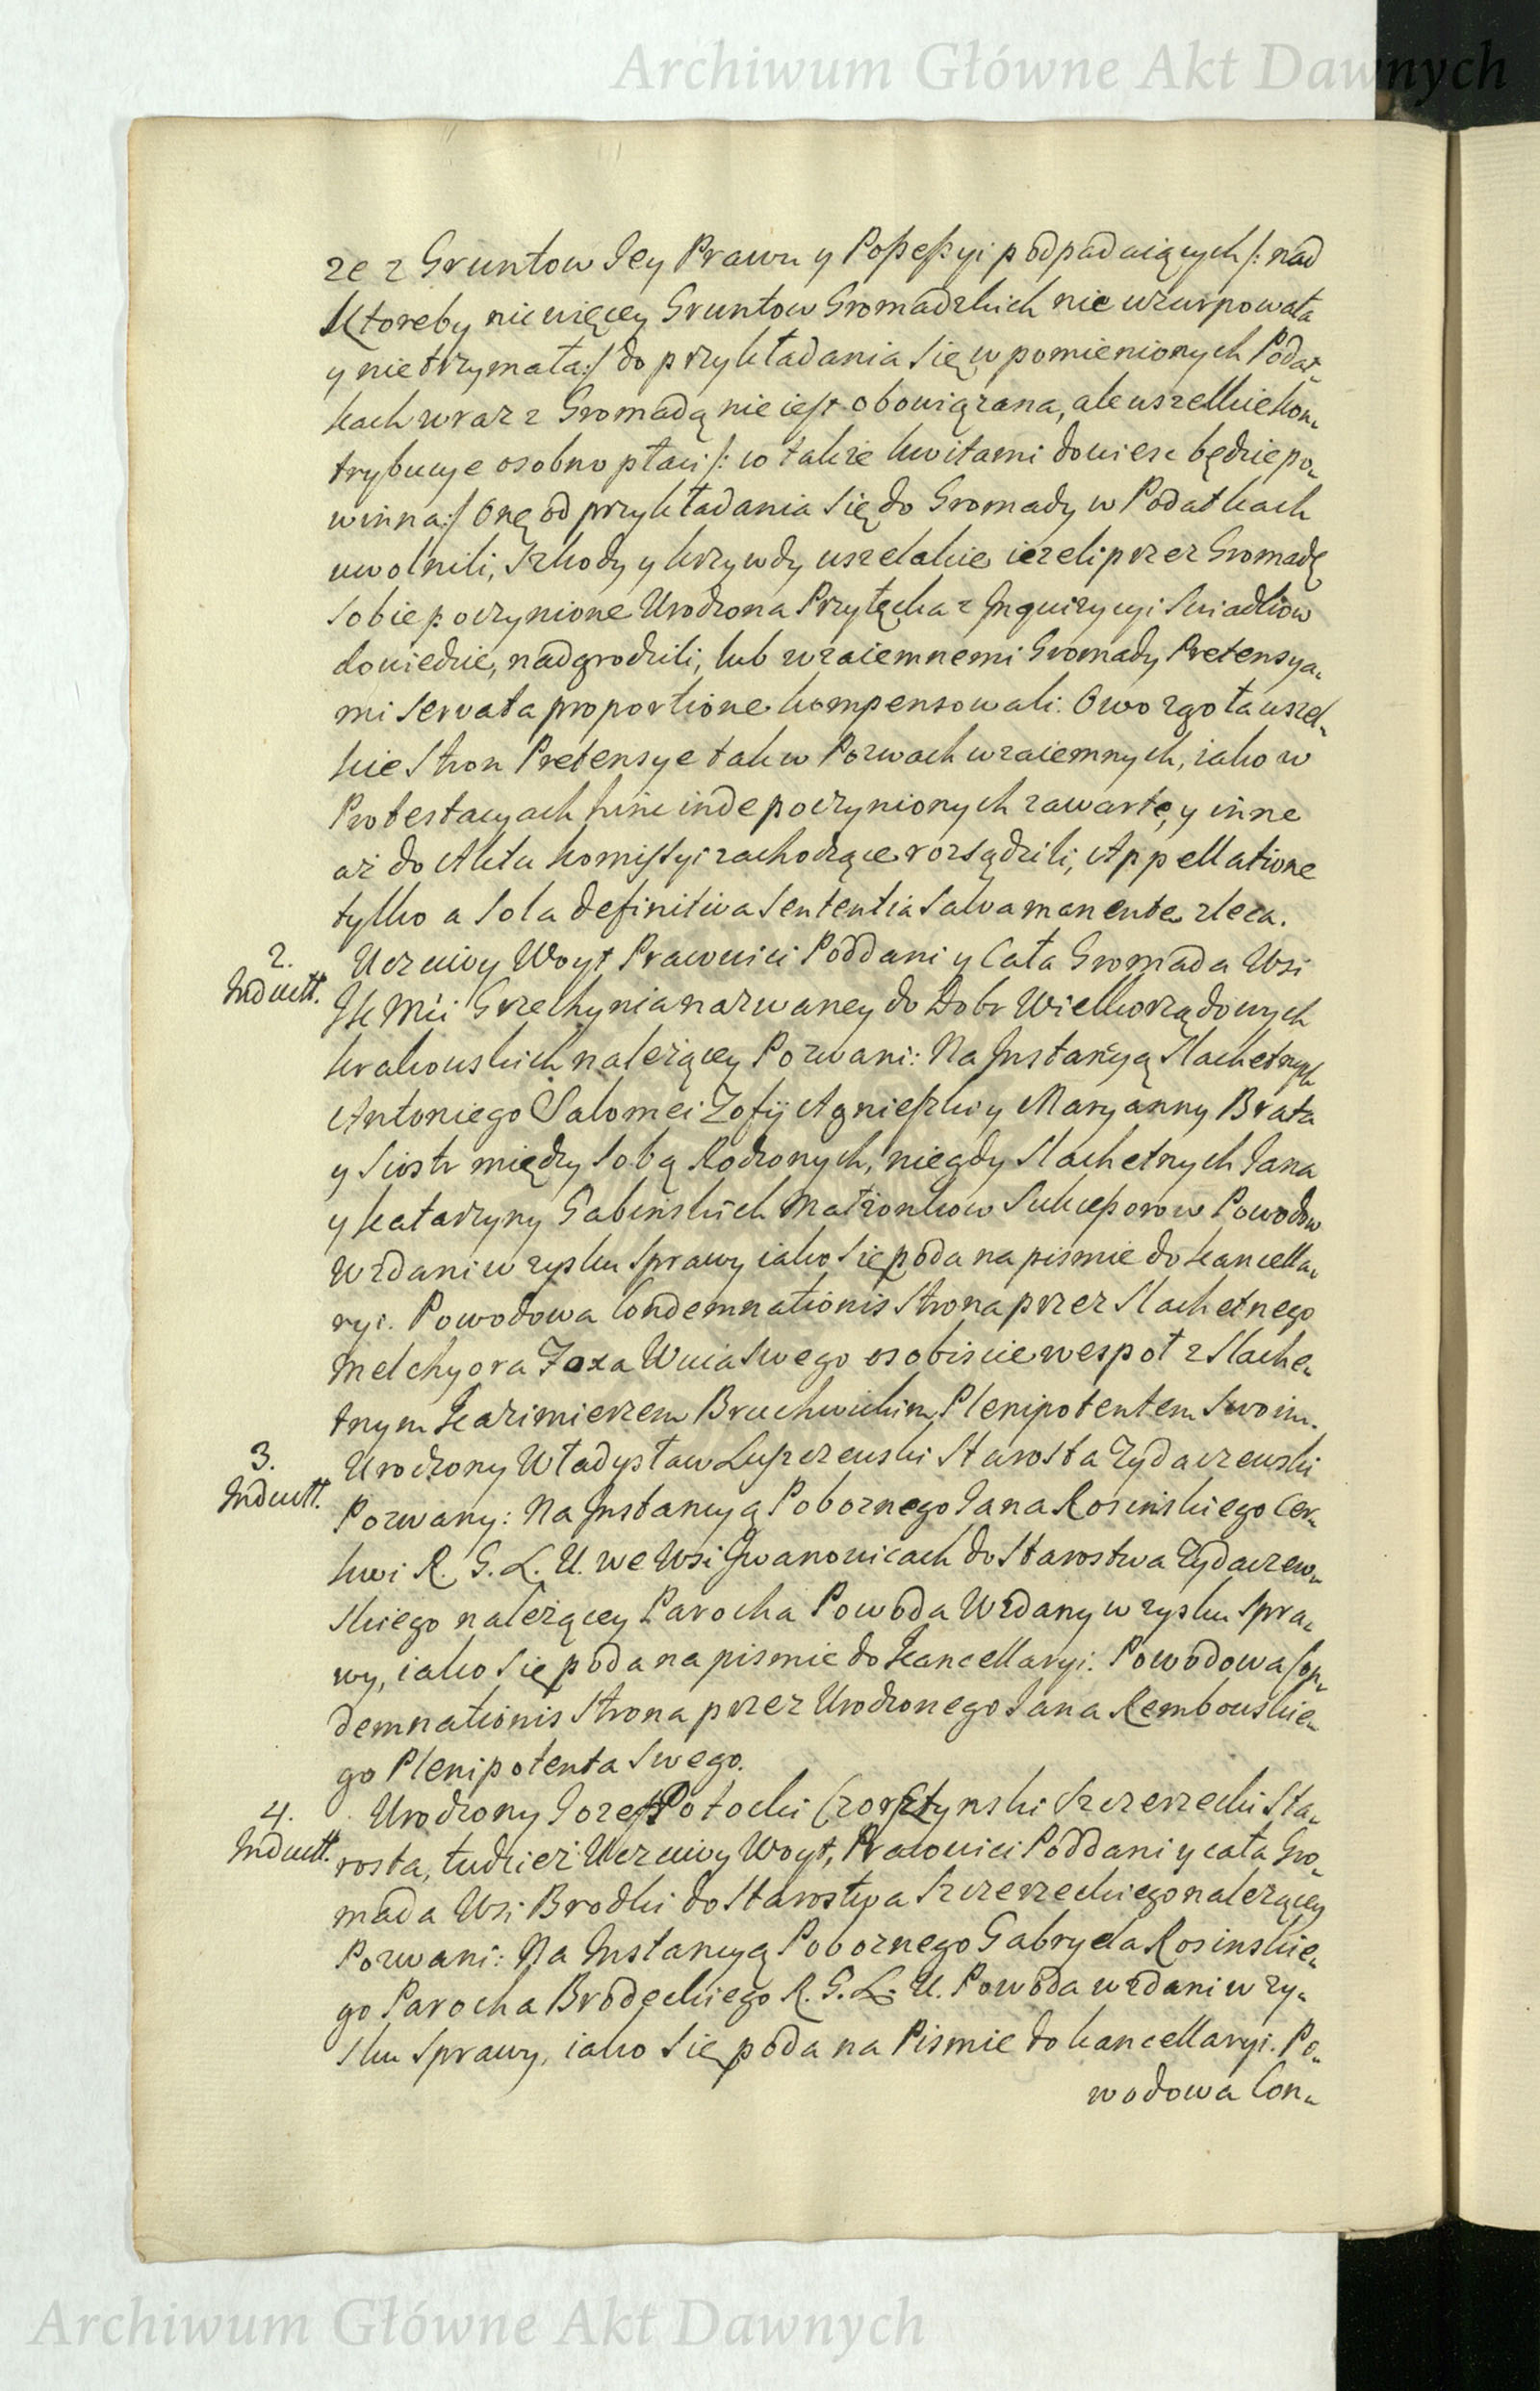 Archiwum Główne Akt Dawnych
ze z Gruntow Jey Prawu y Possessyi podpadaiących /: nad
ktoreby nic więcey Gruntow Gromadzkich nie uzurpowała
y nie trzymała :/ do przykładania się w pomienionych Podat-
kach wraz z Gromadą nie iest obowiązana, ale wszelkie kon-
trybucye osobno płaci /: co także kwitami dowiesc będzie po-
winna :/ Onę od przykładania się do Gromady w Podatkach
uwolnili, Szkody y krzywdy wszelakie ieżeli przez Gromadę
sobie poczynione Urodzona Przyłęcka z Inquizycyi Swiadkow
dowiedzie, nadgrodzili, lub wzaiemnemi Gromady Pretensya-
mi servata proportione kompensowali. Owo zgoła wszel-
kie Stron Pretensye tak w Pozwach wzaiemnych, iako w
Protestacyach hinc inde poczynionych zawarte, y inne
aż do Aktu komissyi zachodzące rozsądzili, Appellatione
tylko a sola definitiva Sententia salva manente zleca.
2. Uczciwy Woyt Prawnici Poddani y Cała Gromada Wsi
Induct. JK Mci Grzechynia nazwaney do Dobr Wielkorządowych
krakowskich należącey Pozwani: Na Instancyą Slachetnych
Antoniego Salomei Zofij Agnieszki y Maryanny Brata
y Siostr między sobą Rodzonych, niegdy Slachetnych Jana
y Katarzyny Gabinskich Małżonkow Sukcessorow Powodow
Wzdani w zysku Sprawy iako się poda na pismie do kancella-
ryi. Powodowa Condemnationis Strona przez Slachetnego
Melchyora Foxa Wuia Swego osobiscie wespoł z Slache-
tnym Kazimierzem Bruchwickim Plenipotentem Swoim.
3. Urodzony Władysław Luszczewski Starosta Zydaczewski
Induct. Pozwany: Na Instancyą Pobornego Jana Rosinskiego Cer-
kwi R. G. L. U. we Wsi Iwanowicach do Starostwa Zydaczew-
skiego należącey Parocha Powoda Wzdany w zysku Spra-
wy, iako się poda na pismie do Kancellaryi. Powodowa Con-
demnationis Strona przez Urodzonego Jana Rembowskie-
go Plenipotenta Swego.
4. Urodzony Jozef Potocki Czorsztynski Szczerzecki Sta-
Induct. rosta, tudzież Uczciwy Woyt, Prawnici Poddani y cała Gro-
mada Wsi Brodki do Starostwa Szczerzeckiego należącey
Pozwani: Na Instancyą Pobornego Gabryela Rosinskie-
go Parocha Brodeckiego R. G. L. U. Powoda wzdani w zy-
sku Sprawy, iako się poda na Pismie do kancellaryi. Po-
wodowa Con-
Archiwum Główne Akt Dawnych